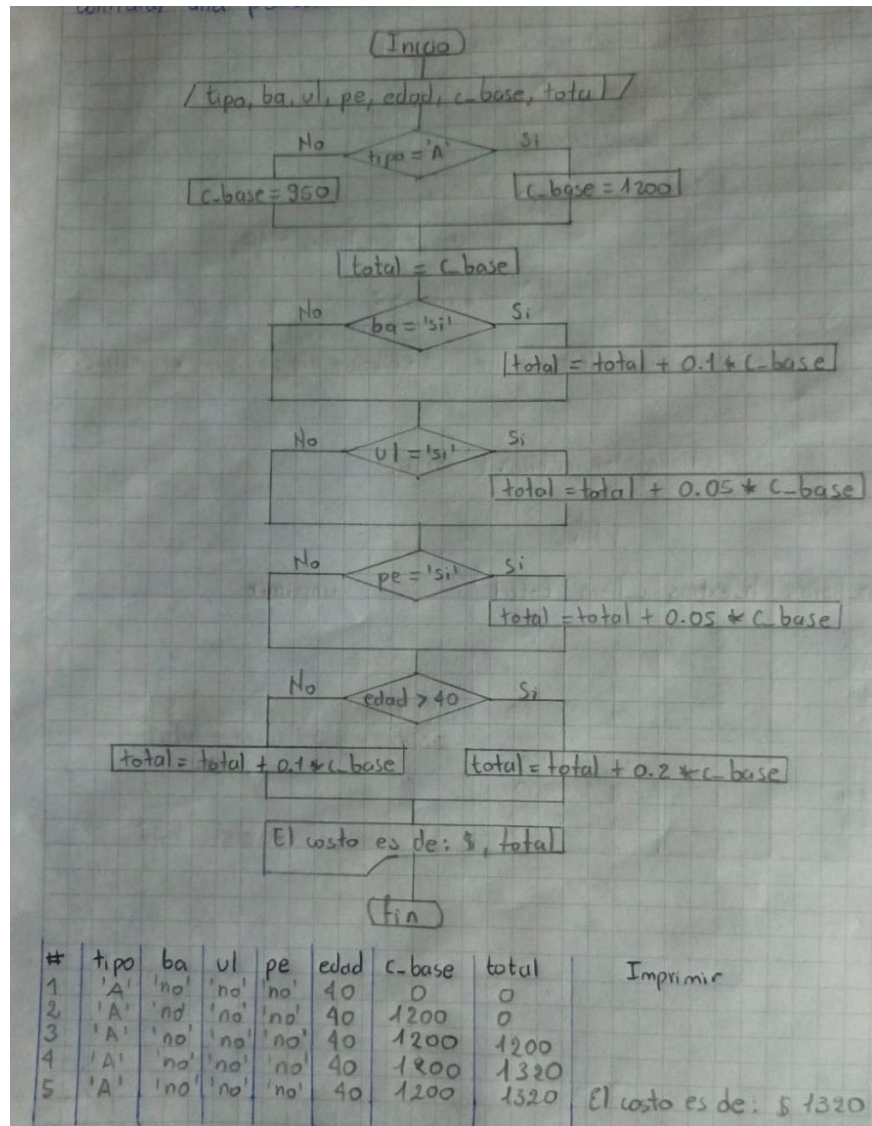 contratar una
Inicio
tipo, ba, ul, pe, edad, c_base, total
No tipo = 'A' Si
c_base = 950 c_base = 1200
total = c_base
No ba = 'si' Si
total = total + 0.1 * c_base
No ul = 'si' Si
total = total + 0.05 * c_base
No pe = 'si' Si
total = total + 0.05 * c_base
No edad > 40 Si
total = total + 0.1 * c_base total = total + 0.2 * c_base
El costo es de: $, total
Fin
# tipo ba ul pe edad c_base total Imprimir
1 'A' 'no' 'no' 'no' 40 0 0
2 'A' 'no' 'no' 'no' 40 1200 0
3 'A' 'no' 'no' 'no' 40 1200 1200
4 'A' 'no' 'no' 'no' 40 1200 1320
5 'A' 'no' 'no' 'no' 40 1200 1320 El costo es de: $ 1320